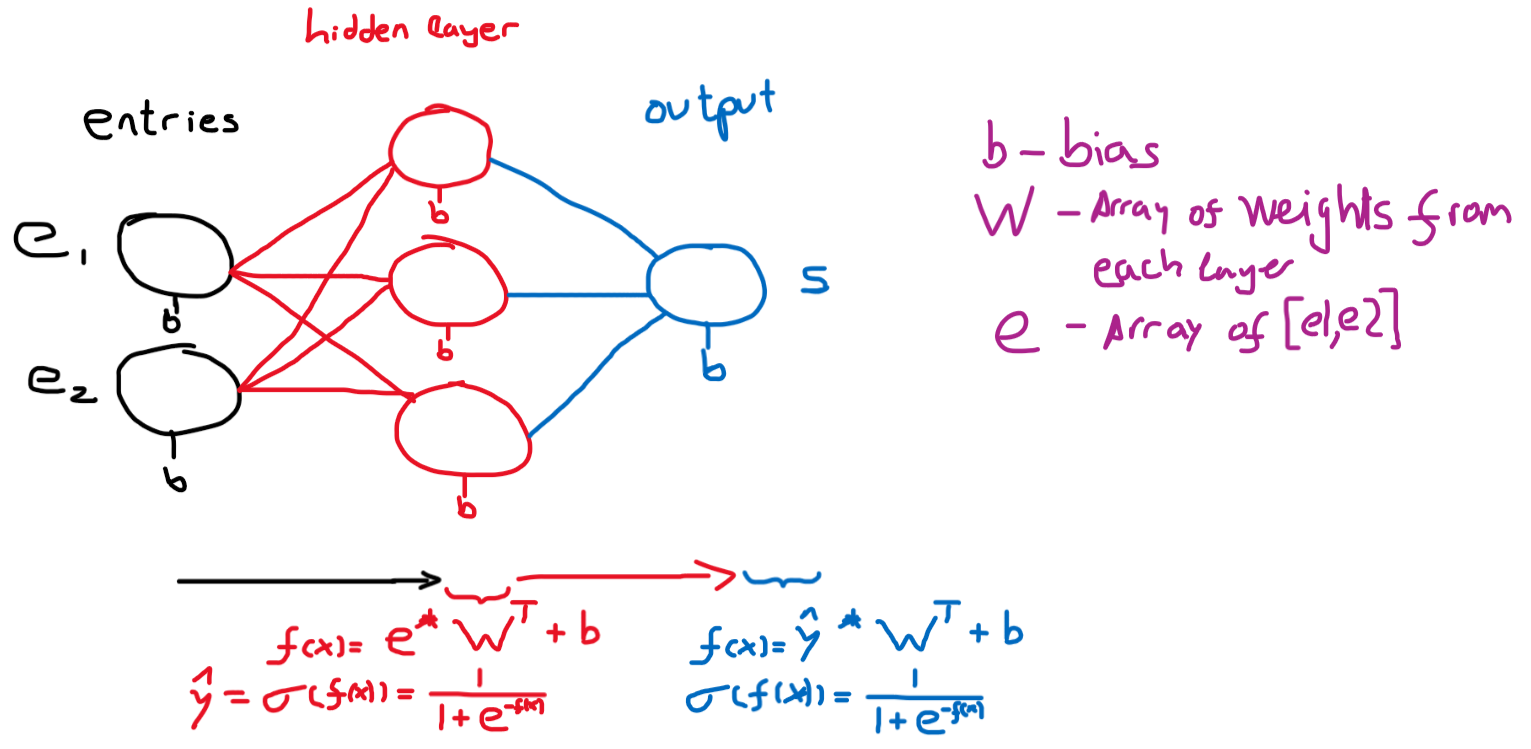 hidden layer
entries
output
e₁
b
e₂
b
b
b
b
S
b
b – bias
W – Array of weights from
each layer
e – Array of [e1,e2]
f(x)= e * Wᵀ + b
ŷ = σ(f(x)) = 1 / 1 + e^-f(x)
f(x)= ŷ * Wᵀ + b
σ(f(x)) = 1 / 1 + e^-f(x)